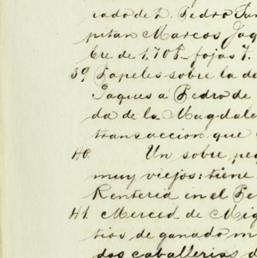 cado de D. Pedro
pitan Marcos
bre de 1,705 fojas 7.
39 Papeles sobre la de
Jaques a Pedro de
da de la Magdale
transaccion que
40. Un sobre peq
muy viejos: tiene
Renteria en el Pe
41 Merced de Mig
tios de ganado m
dos caballerias d